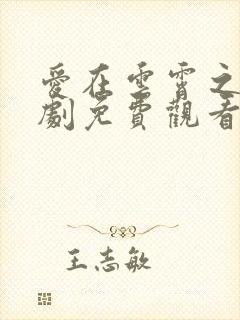 愛在雲霄之
劇免費觀看
王志敏